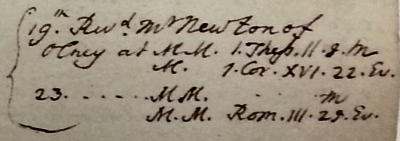 19th. Revd. Mr Newton of
Olney at M.M. 1. Thess. II. 8. M
M. 1. Cor. XVI. 22. Ev.
23. . . . . . . M.M. . . . M
M. M. Rom. III. 29. Ev.